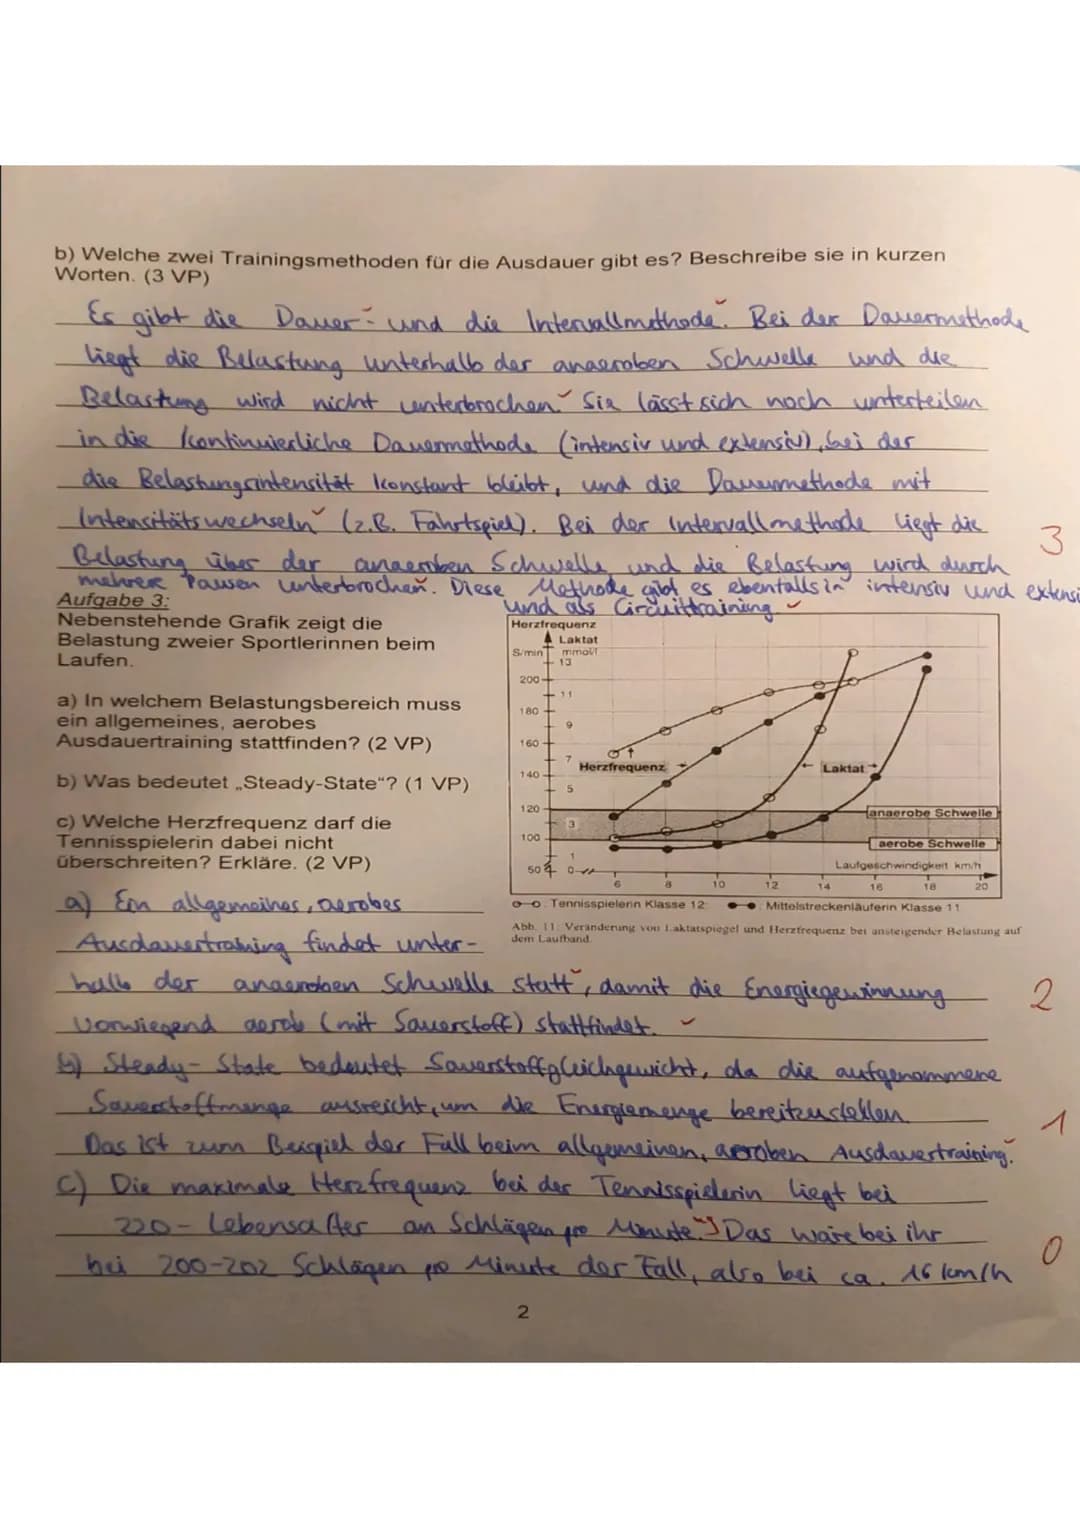 b) Welche zwei Trainingsmethoden für die Ausdauer gibt es? Beschreibe sie in kurzen
Worten. (3 VP)
Es gibt die Dauer- und die Intervallmethode. Bei der Dauermethode
liegt die Belastung unterhalb der anaeroben Schwelle und die
Belastung wird nicht unterbrochen. Sie lässt sich noch unterteilen
in die kontinuierliche Dauermethode (intensiv und extensiv), bei der
die Belastungsintensität konstant bleibt, und die Dauermethode mit
Intensitätswechseln (z.B. Fahrtspiel). Bei der Intervallmethode liegt die
3
Belastung über der anaeroben Schwelle und die Belastung wird durch
mehrere Pausen unterbrochen. Diese Methode gibt es ebenfalls in intensiv und extensi
und als Circuittraining
Aufgabe 3:
Nebenstehende Grafik zeigt die
Belastung zweier Sportlerinnen beim
Laufen.
a) In welchem Belastungsbereich muss
ein allgemeines, aerobes
Ausdauertraining stattfinden? (2 VP)
b) Was bedeutet „Steady-State“? (1 VP)
c) Welche Herzfrequenz darf die
Tennisspielerin dabei nicht
überschreiten? Erkläre. (2 VP)
Herzfrequenz
Laktat
S/min mmol/l
13
200
11
180
9
160
7
Herzfrequenz
Laktat
140
5
120
anaerobe Schwelle
3
100
aerobe Schwelle
1
Laufgeschwindigkeit km/h
50 0
6 8 10 12 14 16 18 20
o-o: Tennisspielerin Klasse 12 ●-●: Mittelstreckenläuferin Klasse 11
Abb. 11: Veränderung von Laktatspiegel und Herzfrequenz bei ansteigender Belastung auf
dem Laufband.
a) Ein allgemeines, aerobes
Ausdauertraining findet unter-
halb der anaeroben Schwelle statt, damit die Energiegewinnung
2
vorwiegend aerob (mit Sauerstoff) stattfindet.
b) Steady-State bedeutet Sauerstoffgleichgewicht, da die aufgenommene
Sauerstoffmenge ausreicht, um die Energiemenge bereitzustellen.
1
Das ist zum Beispiel der Fall beim allgemeinen, aeroben Ausdauertraining.
c) Die maximale Herzfrequenz bei der Tennisspielerin liegt bei
220 - Lebensalter an Schlägen pro Minute. Das wäre bei ihr
0
bei 200-202 Schlägen pro Minute der Fall, also bei ca. 16 km/h
2